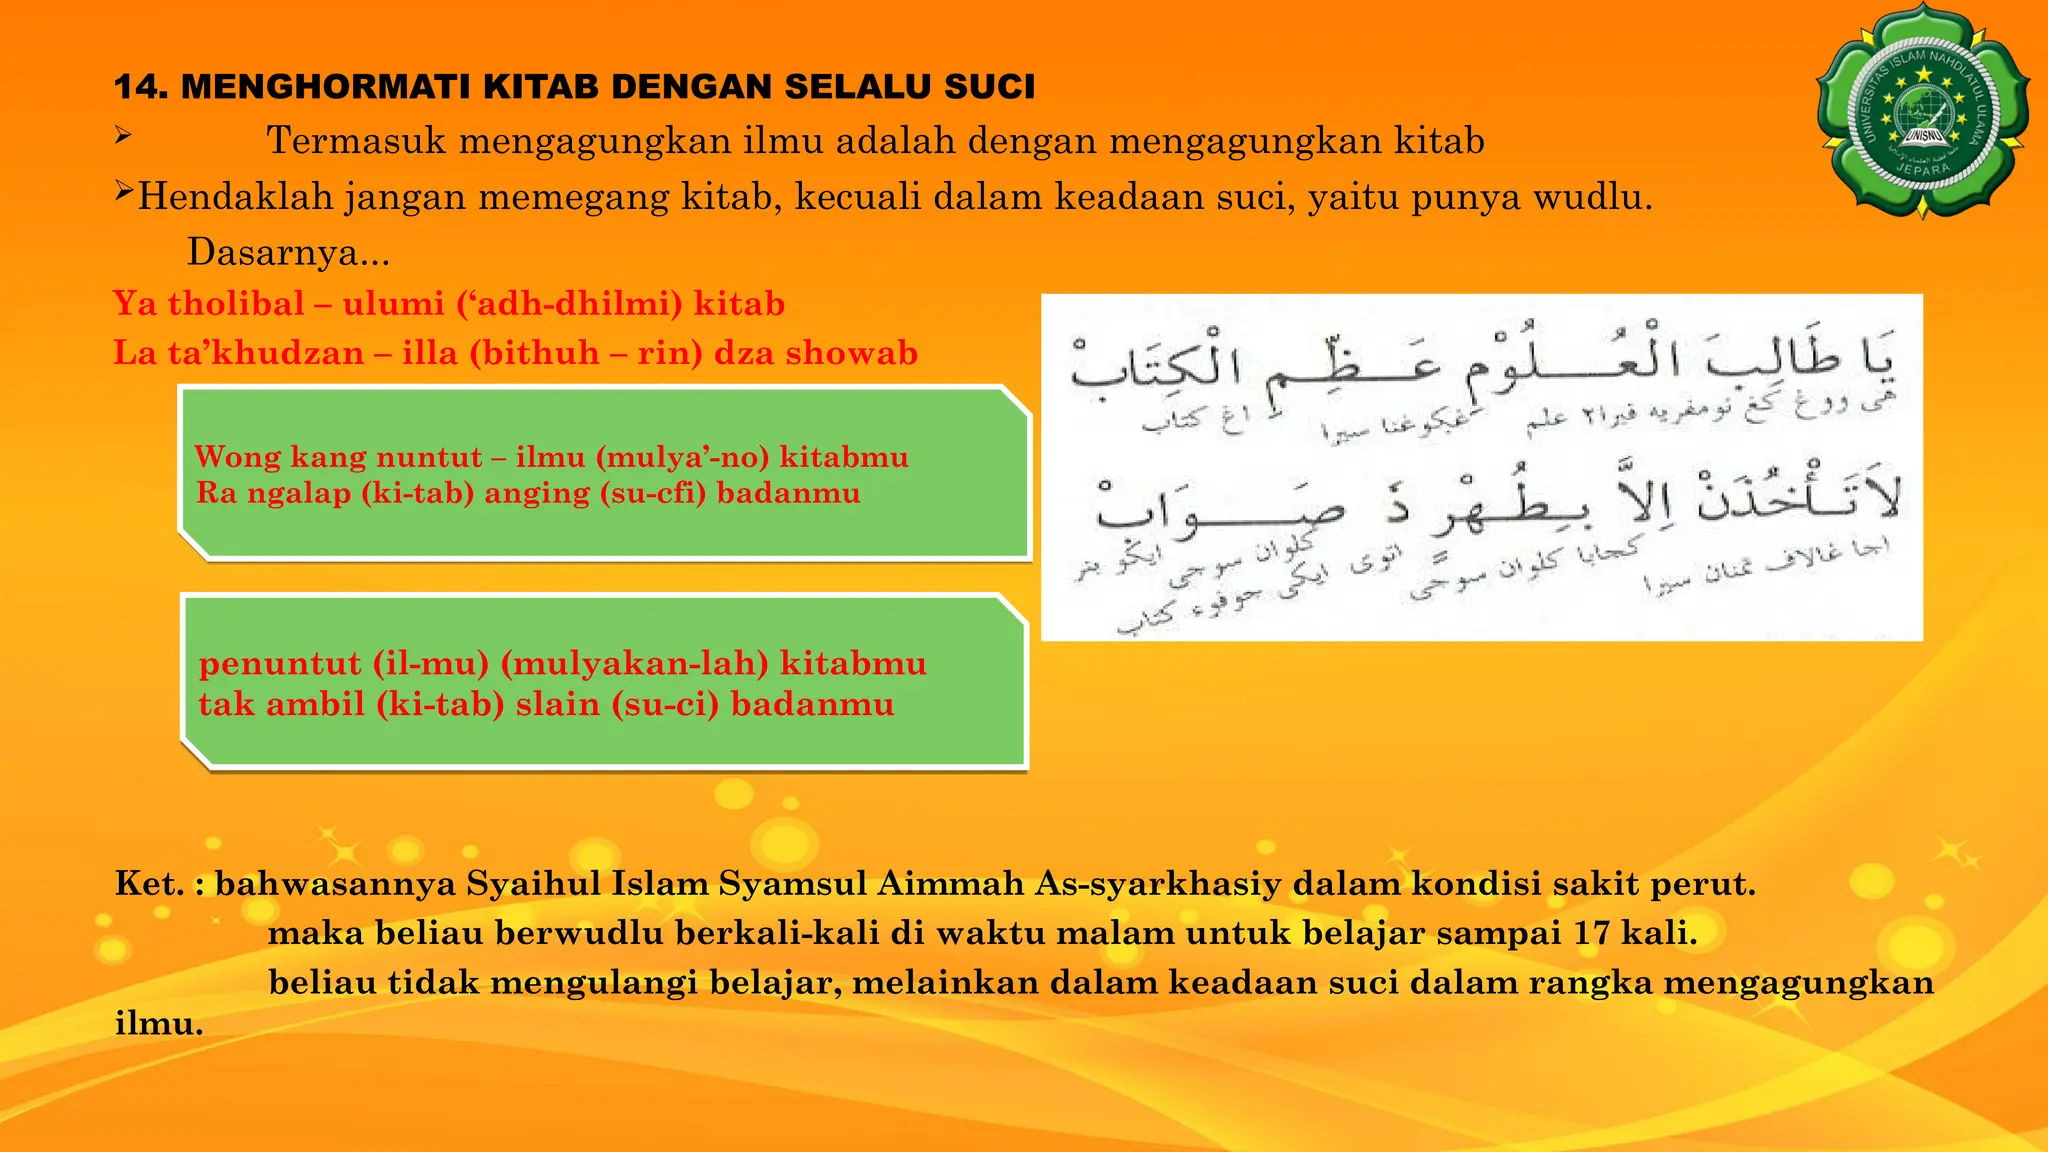 14. MENGHORMATI KITAB DENGAN SELALU SUCI
Termasuk mengagungkan ilmu adalah dengan mengagungkan kitab
Hendaklah jangan memegang kitab, kecuali dalam keadaan suci, yaitu punya wudlu.
Dasarnya...
Ya tholibal – ulumi (‘adh-dhilmi) kitab
La ta’khudzan – illa (bithuh – rin) dza showab
Wong kang nuntut – ilmu (mulya’-no) kitabmu
Ra ngalap (ki-tab) anging (su-cfi) badanmu
penuntut (il-mu) (mulyakan-lah) kitabmu
tak ambil (ki-tab) slain (su-ci) badanmu
يَا طَالِبَ الْعُلُوْمِ عَظِّمِ الْكِتَابْ
هى ووڠ كڠ نومفريه فيرا٢ علم سيرا اڠ كتاب
لَا تَأْخُذَنْ اِلَّا بِطُهْرٍ ذَ صَوَابْ
اجا غالاف سيرا كجابا كلوان سوجى اتوى ايكى كلوان سوجى ايكو بنر
كتاب
Ket. : bahwasannya Syaihul Islam Syamsul Aimmah As-syarkhasiy dalam kondisi sakit perut.
maka beliau berwudlu berkali-kali di waktu malam untuk belajar sampai 17 kali.
beliau tidak mengulangi belajar, melainkan dalam keadaan suci dalam rangka mengagungkan
ilmu.
UNIVERSITAS ISLAM NAHDLATUL ULAMA
UNISNU
JEPARA